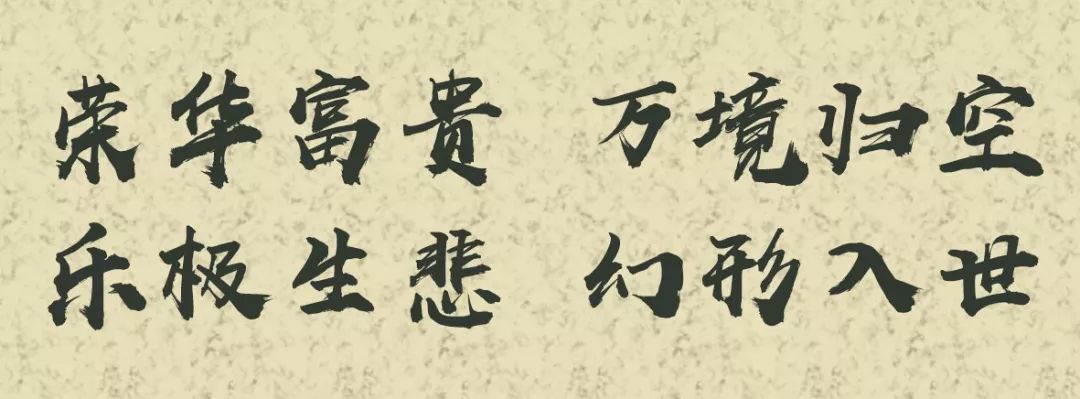 荣华富贵 万境归空
乐极生悲 幻形入世